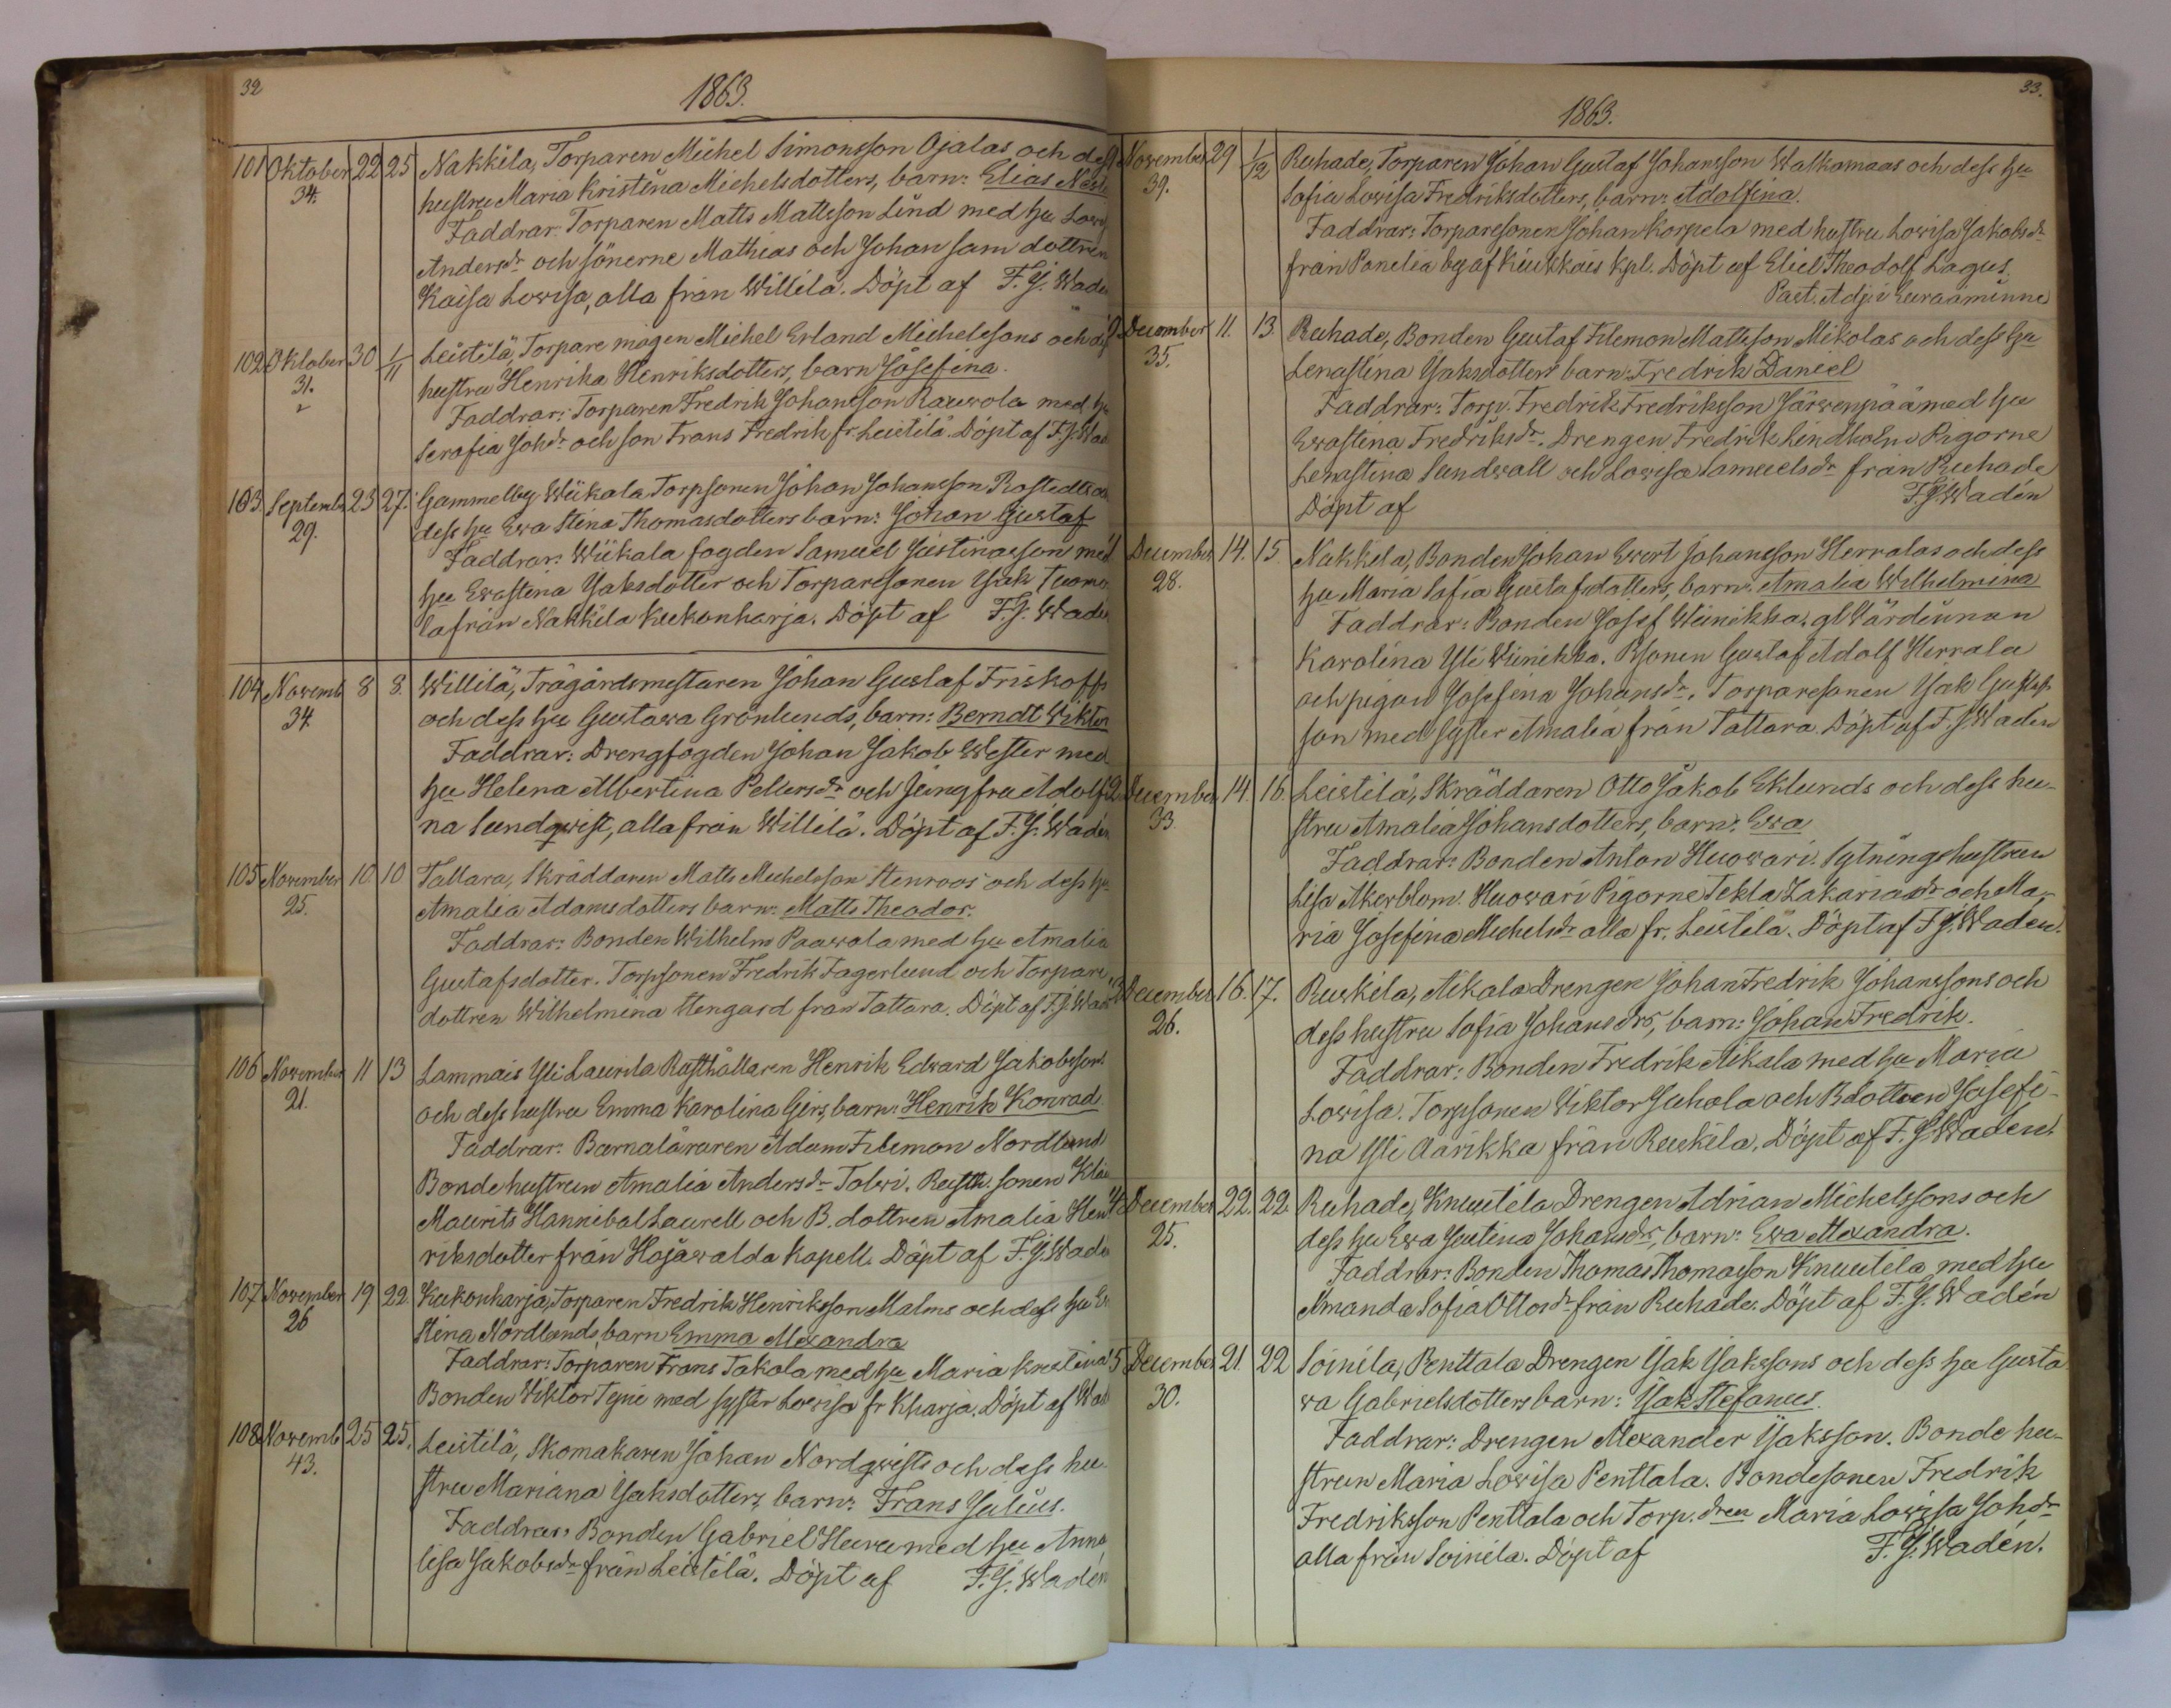 32
1863.
101 Oktober 22 25 Nakkila, Torparen Michel Simonsson Ojalas och dess
34. hustru Maria Kristina Michelsdotters, barn: Elias
Faddrar: Torparen Matts Mattsson Lind med hu
Andersdr och sönerne Mathias och Johan sam dottren
Kaisa Lowisa, alla från Willilä. Döpt af F. J. Wadén
102 Oktober 30 1/11 Leistilä, Torpare mågen Michel Erland Michelssons och
31. hustru Henrika Henriksdotters, barn Josefina.
Faddrar: Torparen Fredrik Johansson Rauwola med hu
Serafia Johdr och son Frans Fredrik fr. Leistilä. Döpt af F. J. Wad
103. Septemb. 23 27. Gammelby Wiikala Torpsonen Johan Johansson Rostedts
29. dess hu Ewa Stina Thomasdotters barn: Johan Gustaf
Faddrar: Wiikala fogden Samuel Justinasson med
hu Ewastina Isaksdotter och Torparesonen Isak Tuomo
la från Nakkila Kukonharja. Döpt af F. J. Wadén
104 Novemb 8 8. Willilä, Trägårdsmestaren Johan Gustaf Friskoffs
34 och dess hu Gustawa Grönlunds, barn: Berndt Wiktor
Faddrar: Drengfogden Johan Jakob Wester med
hu Helena Albertina Pettersdr och Jungfru Adolfi
na Sundqwist, alla från Willilä. Döpt af F. J. Wadén
105 November 10 10 Tattara, Skräddaren Matts Michelsson Stenroos och dess hu
25. Amalia Adamsdotters barn: Matts Theodor.
Faddrar: Bonden Wilhelm Paawola med hu Amalia
Gustafsdotter. Torpsonen Fredrik Fagerlund och Torpare
dottren Wilhelmina Stengard från Tattara. Döpt af F. J. Wad
106 November 11 13 Lammais Yli Laurila Rusthållaren Henrik Edward Jakobssons
21. och dess hustru Emma Karolina Girs, barn: Henrik Konrad.
Faddrar: Barnaläraren Adam Filemon Nordlund
Bondehustrun Amalia Andersdr Tolwi. Rusth. sonen
Maurits Hannibal Laurell och B. dottren Amalia Hen
riksdotter från Kapell. Döpt af F. J. Wadé
107 November 19 22 Kukonharja, Torparen Fredrik Henriksson Malms och dess hu
26 Stina Nordlunds barn Emma Alexandra
Faddrar: Torparen Frans Takola med hu Maria Kristina
Bonden Wiktor med syster Lowisa fr Kharja. Döpt af Wad
108 Novemb 25 25. Leistilä, Skomakaren Johan Nordqwists och dess hu
43. stru Mariana Isaksdotters barn: Frans Julius.
Faddrar: Bonden Gabriel med hu Anna
lisa Jakobsdr från Leistilä. Döpt af F. J. Wadén
33.
1863.
November 29 1/12 Ruhade, Torparen Johan Gustaf Johansson Walkamaas och dess hu
39. Sofia Lowisa Fredriksdotters, barn: Adolfina.
Faddrar: Torparesonen Johan Korpela med hustru Lowisa Jakobsdr
från Panelia by af Kiukkais kpl. Döpt af Eliel Theodolf Lagus.
Past. Adj. i Euraaminne
December 11. 13 Ruhade, Bonden Gustaf Filemon Mattsson Mikolas och dess hu
35. Lenastina Isaksdotters barn: Fredrik Daniel
Faddrar: Torp. Fredrik Fredriksson Järwenpää med hu
Ewastina Fredriksdr. Drengen Fredrik Lindholm Pigorne
Lenastina Sundwall och Lowisa Samuelsdr från Ruhade
Döpt af F. J. Wadén
December 14. 15. Nakkila, Bonden Johan Ewert Johansson Herralas och dess
28. hu Maria Sofia Gustafsdotters, barn: Amalia Wilhelmina
Faddrar: Bonden Josef Wiinikka, gl. Wärdinnan
Karolina Yli Wiinikka. Bsonen Gustaf Adolf Herrala
och pigan Josefina Johansdr. Torparesonen Isak Gustafs
son med syster Amalia från Tattara. Döpt af F. J. Wadén
December 14. 16. Leistilä, Skräddaren Otto Jakob Eklunds och dess hu-
33. stru Amalia Johansdotters, barn: Ewa
Faddrar: Bonden Anton Huowari. Sytningshustrun
Lisa Åkerblom. Huowari Pigorne Tekla Zakariasdr och Ma-
ria Josefina Michelsdr alla fr. Leistilä. Döpt af F. J. Wadén.
December 16. 17. Ruskila, Aikala Drengen Johan Fredrik Johanssons och
26. dess hustru Sofia Johansdrs, barn: Johan Fredrik.
Faddrar: Bonden Fredrik Aikala med hu Maria
Lowisa. Torpsonen Wiktor Juhola och Bdottren Josefi-
na Yli Aarikka från Ruskila. Döpt af F. J. Wadén.
December 22. 22. Ruhade, Knuutila Drengen Adrian Michelssons och
25. dess hu Ewa Justina Johansdr, barn: Ewa Alexandra.
Faddrar: Bonden Thomas Thomasson Knuutila med hu
Amanda Sofia Ottosdr från Ruhade. Döpt af F. J. Wadén
December 21. 22 Soinila, Penttala Drengen Isak Isakssons och dess hu Gusta
30. va Gabrielsdotters barn: Isak Stefanus.
Faddrar: Drengen Alexander Isaksson. Bonde hu-
strun Maria Lowisa Penttala. Bondesonen Fredrik
Fredriksson Penttala och Torp. dren Maria Lowisa Johdr
alla från Soinila. Döpt af F. J. Wadén.